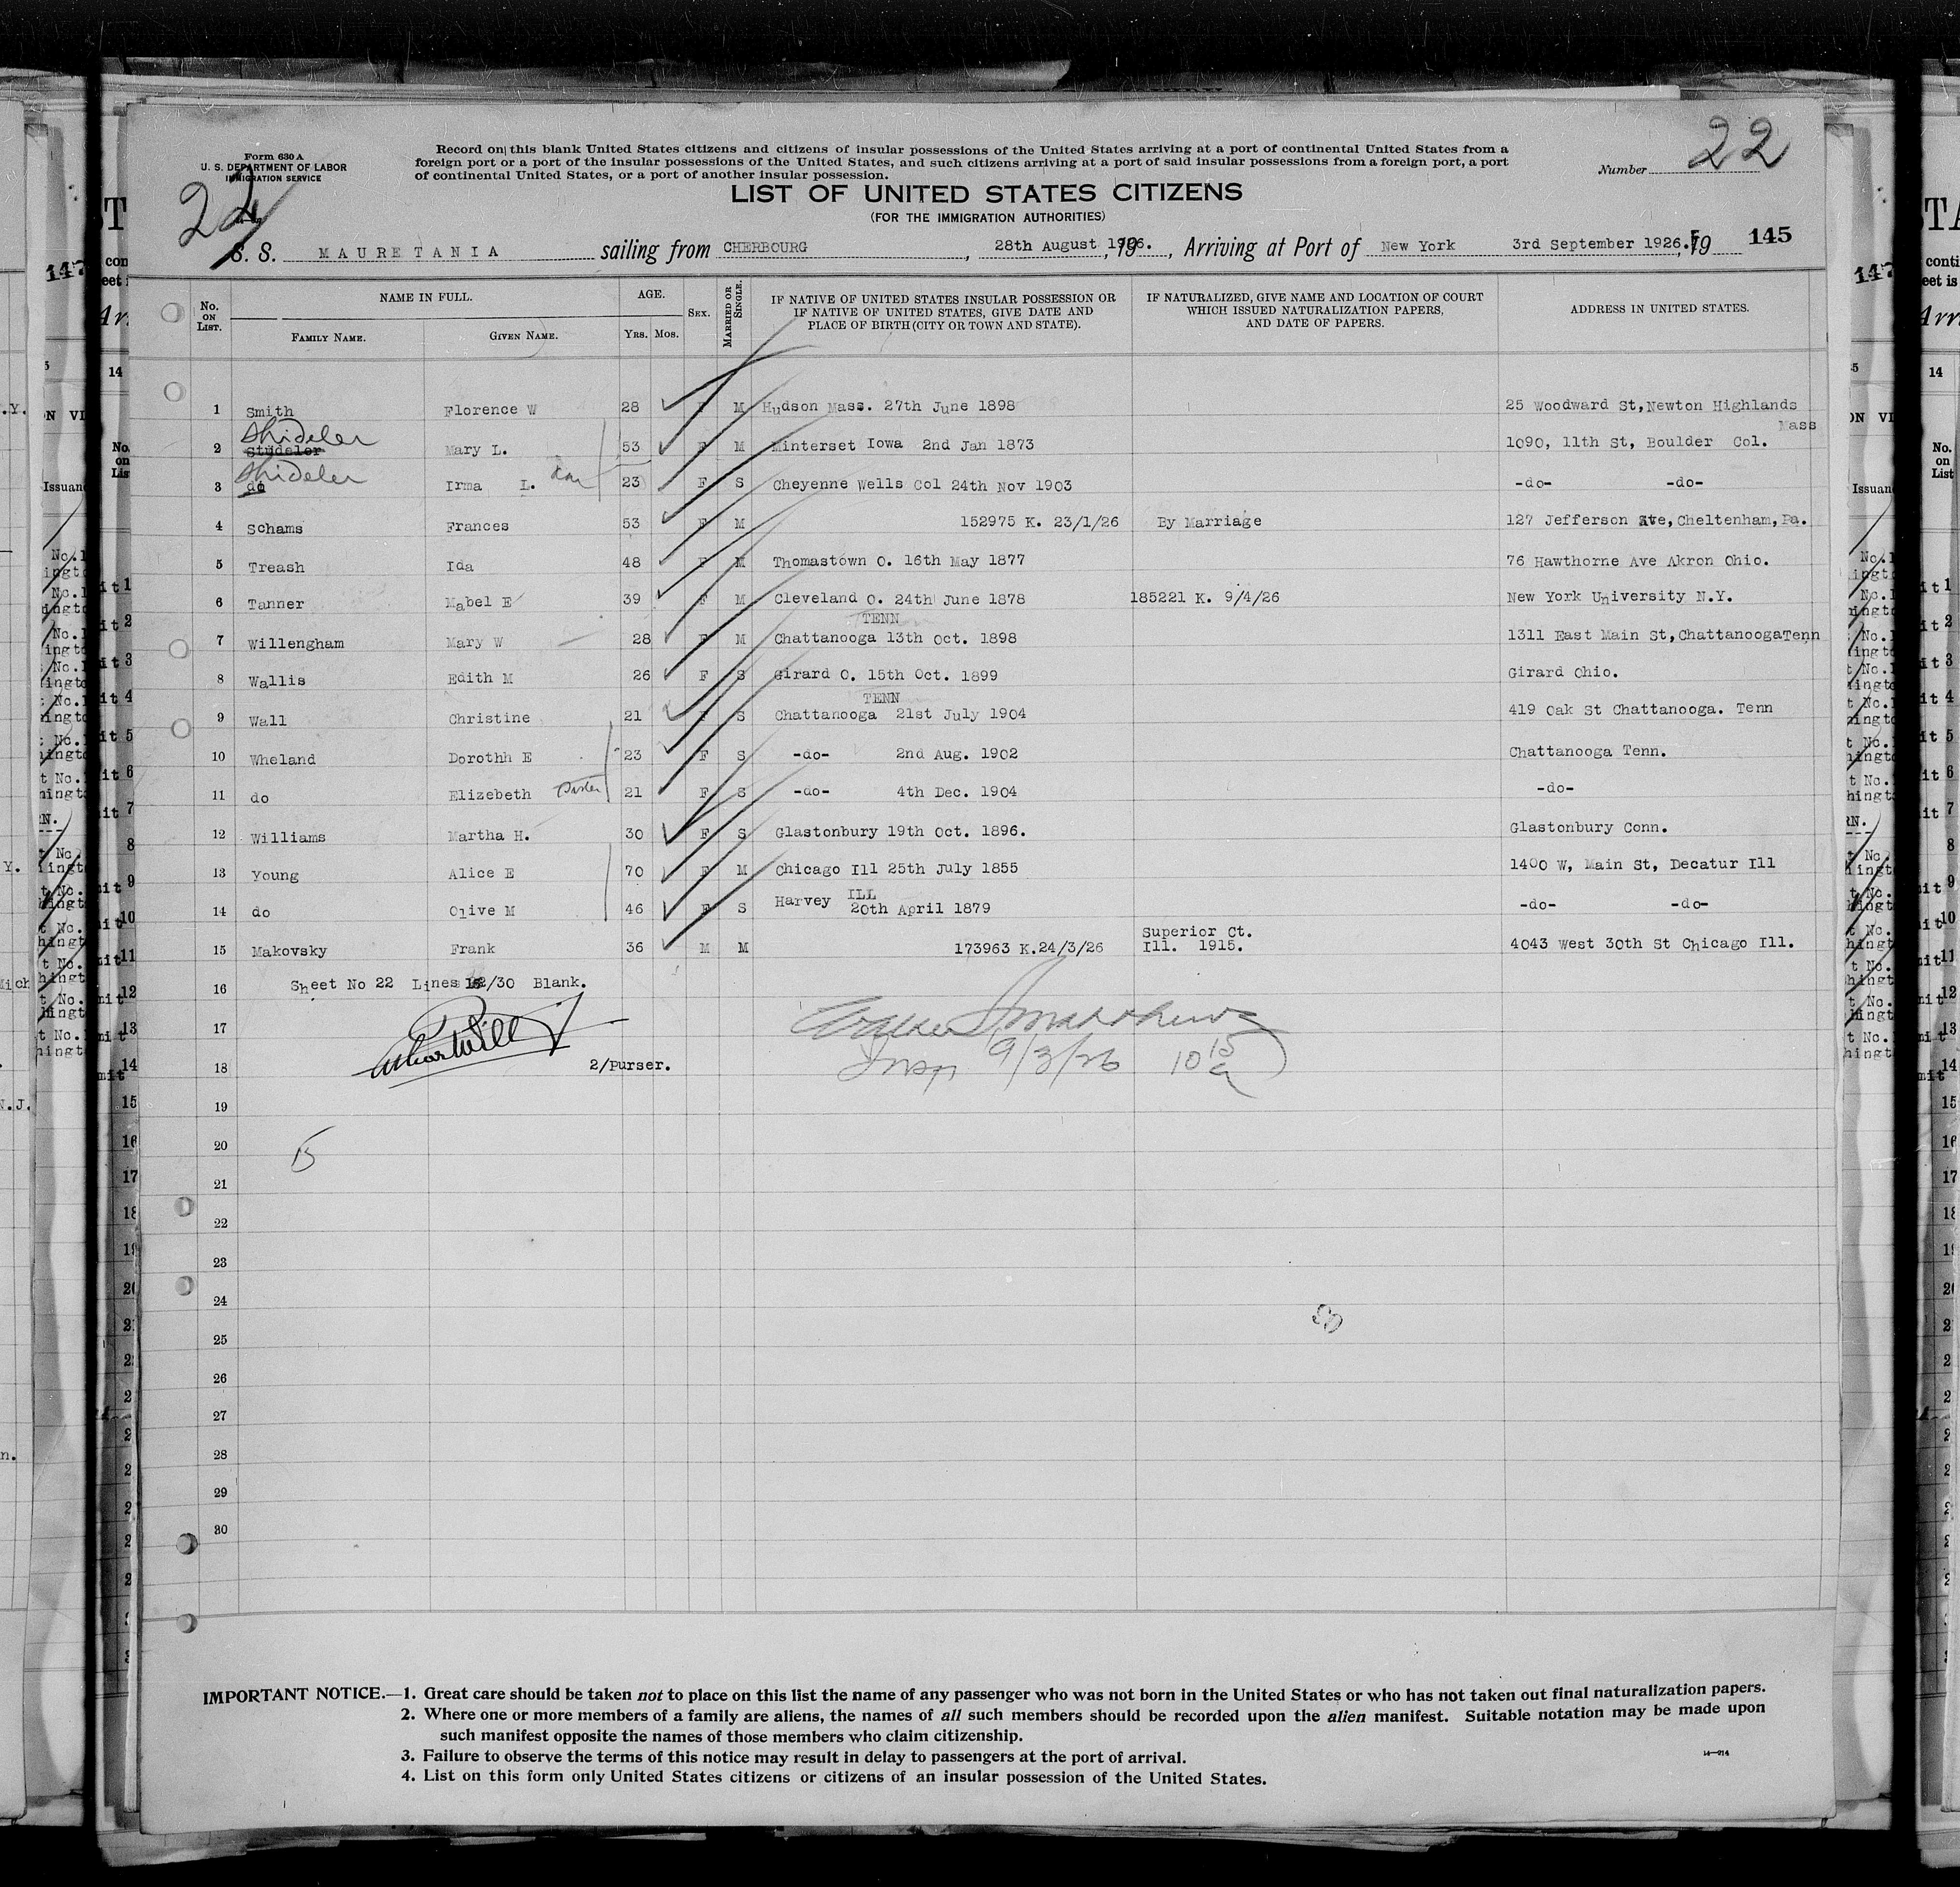 22
Form 630 A
U. S. DEPARTMENT OF LABOR
IMMIGRATION SERVICE
Record on this blank United States citizens and citizens of insular possessions of the United States arriving at a port of continental United States from a
foreign port or a port of the insular possessions of the United States, and such citizens arriving at a port of said insular possessions from a foreign port, a port
of continental United States, or a port of another insular possession.
Number 22
LIST OF UNITED STATES CITIZENS
(FOR THE IMMIGRATION AUTHORITIES)
S. S. MAURETANIA sailing from CHERBOURG, 28th August 1926., 19, Arriving at Port of New York 3rd September 1926., 19 145
No. ON LIST. NAME IN FULL. FAMILY NAME. GIVEN NAME. AGE. YRS. MOS. SEX. MARRIED OR SINGLE. IF NATIVE OF UNITED STATES INSULAR POSSESSION OR IF NATIVE OF UNITED STATES, GIVE DATE AND PLACE OF BIRTH (CITY OR TOWN AND STATE). IF NATURALIZED, GIVE NAME AND LOCATION OF COURT WHICH ISSUED NATURALIZATION PAPERS, AND DATE OF PAPERS. ADDRESS IN UNITED STATES.
1 Smith Florence W 28 F M Hudson Mass. 27th June 1898 25 Woodward St, Newton Highlands Mass
2 Studeler Shideler Mary L. 53 F M Winterset Iowa 2nd Jan 1873 1090, 11th St, Boulder Col.
3 do Shideler Irma L. 23 F S Cheyenne Wells Col 24th Nov 1903 -do- -do-
4 Schams Frances 53 F M 152975 K. 23/1/26 By Marriage 127 Jefferson Ave, Cheltenham, Pa.
5 Treash Ida 48 F M Thomastown O. 16th May 1877 76 Hawthorne Ave Akron Ohio.
6 Tanner Mabel E 39 F M Cleveland O. 24th June 1878 185221 K. 9/4/26 New York University N.Y.
7 Willengham Mary W 28 F M Chattanooga TENN 13th Oct. 1898 1311 East Main St, Chattanooga Tenn
8 Wallis Edith M 26 F S Girard O. 15th Oct. 1899 Girard Ohio.
9 Wall Christine 21 F S Chattanooga TENN 21st July 1904 419 Oak St Chattanooga. Tenn
10 Wheland Dorothh E 23 F S -do- 2nd Aug. 1902 Chattanooga Tenn.
11 do Elizebeth Sister 21 F S -do- 4th Dec. 1904 -do-
12 Williams Martha H. 30 F S Glastonbury 19th Oct. 1896. Glastonbury Conn.
13 Young Alice E 70 F M Chicago Ill 25th July 1855 1400 W, Main St, Decatur Ill
14 do Olive M 46 F S Harvey ILL 20th April 1879 -do- -do-
15 Makovsky Frank 36 M M 173963 K.24/3/26 Superior Ct. Ill. 1915. 4043 West 30th St Chicago Ill.
16 Sheet No 22 Lines /30 Blank.
17
18 2/Purser.
Insp 9/3/26 10 15 a
19
20 15
21
22
23
24
25
26
27
28
29
30
IMPORTANT NOTICE.—1. Great care should be taken not to place on this list the name of any passenger who was not born in the United States or who has not taken out final naturalization papers.
2. Where one or more members of a family are aliens, the names of all such members should be recorded upon the alien manifest. Suitable notation may be made upon
such manifest opposite the names of those members who claim citizenship.
3. Failure to observe the terms of this notice may result in delay to passengers at the port of arrival.
4. List on this form only United States citizens or citizens of an insular possession of the United States.
14—914